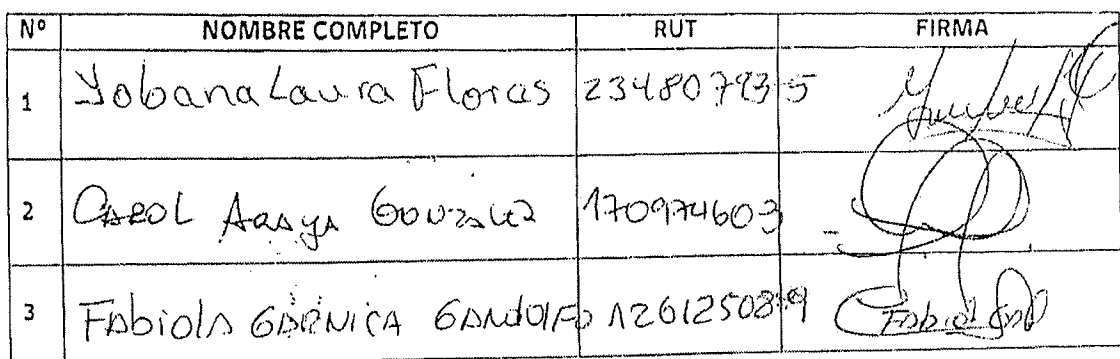 Nº NOMBRE COMPLETO RUT FIRMA
1 Yobana Laura Floras 23480793-5
2 CAROL ARAYA GONZALEZ 170974603
3 FAbiolA GARNICA GANdOlFO 126125089 Fabiola